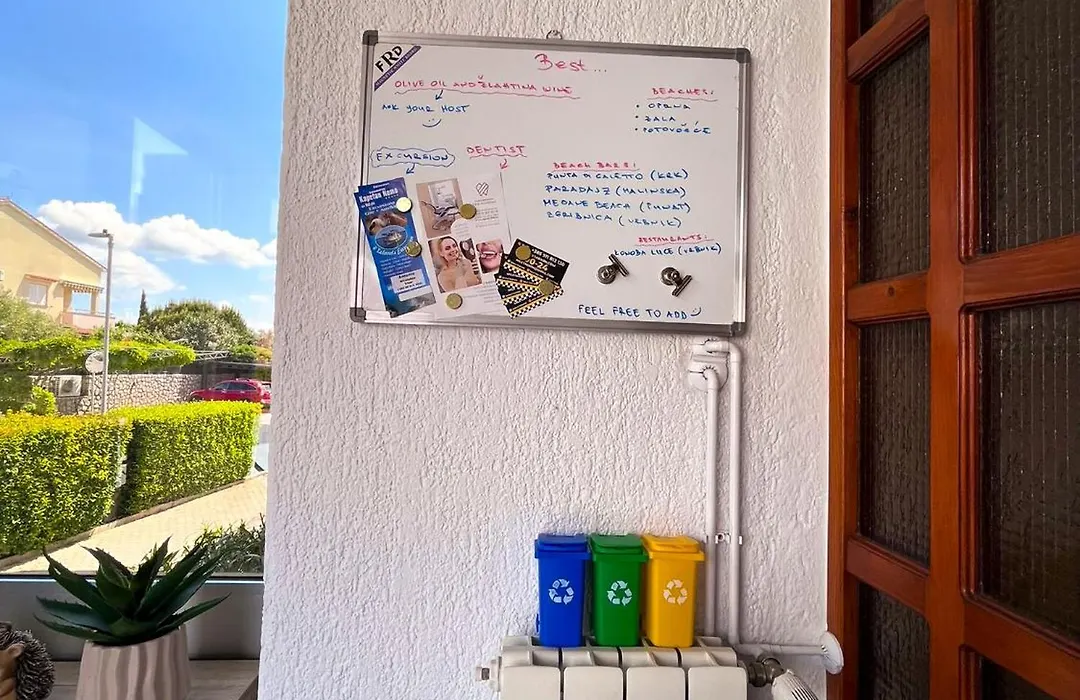 FRD
Best...
OLIVE OIL AND ŽLAHTINA WINE
ASK YOUR HOST
BEACHES:
• OPRNA
• ZALA
• POTOVOŠĆE
EXCURSION
DENTIST
BEACH BARS:
PUNTA DI GALETTO (KRK)
PARADAJZ (MALINSKA)
MEDANE BEACH (PUNAT)
ZGRIBNICA (VRBNIK)
RESTAURANTS:
KONOBA LUCE (VRBNIK)
Kapetan Nemo
FEEL FREE TO ADD